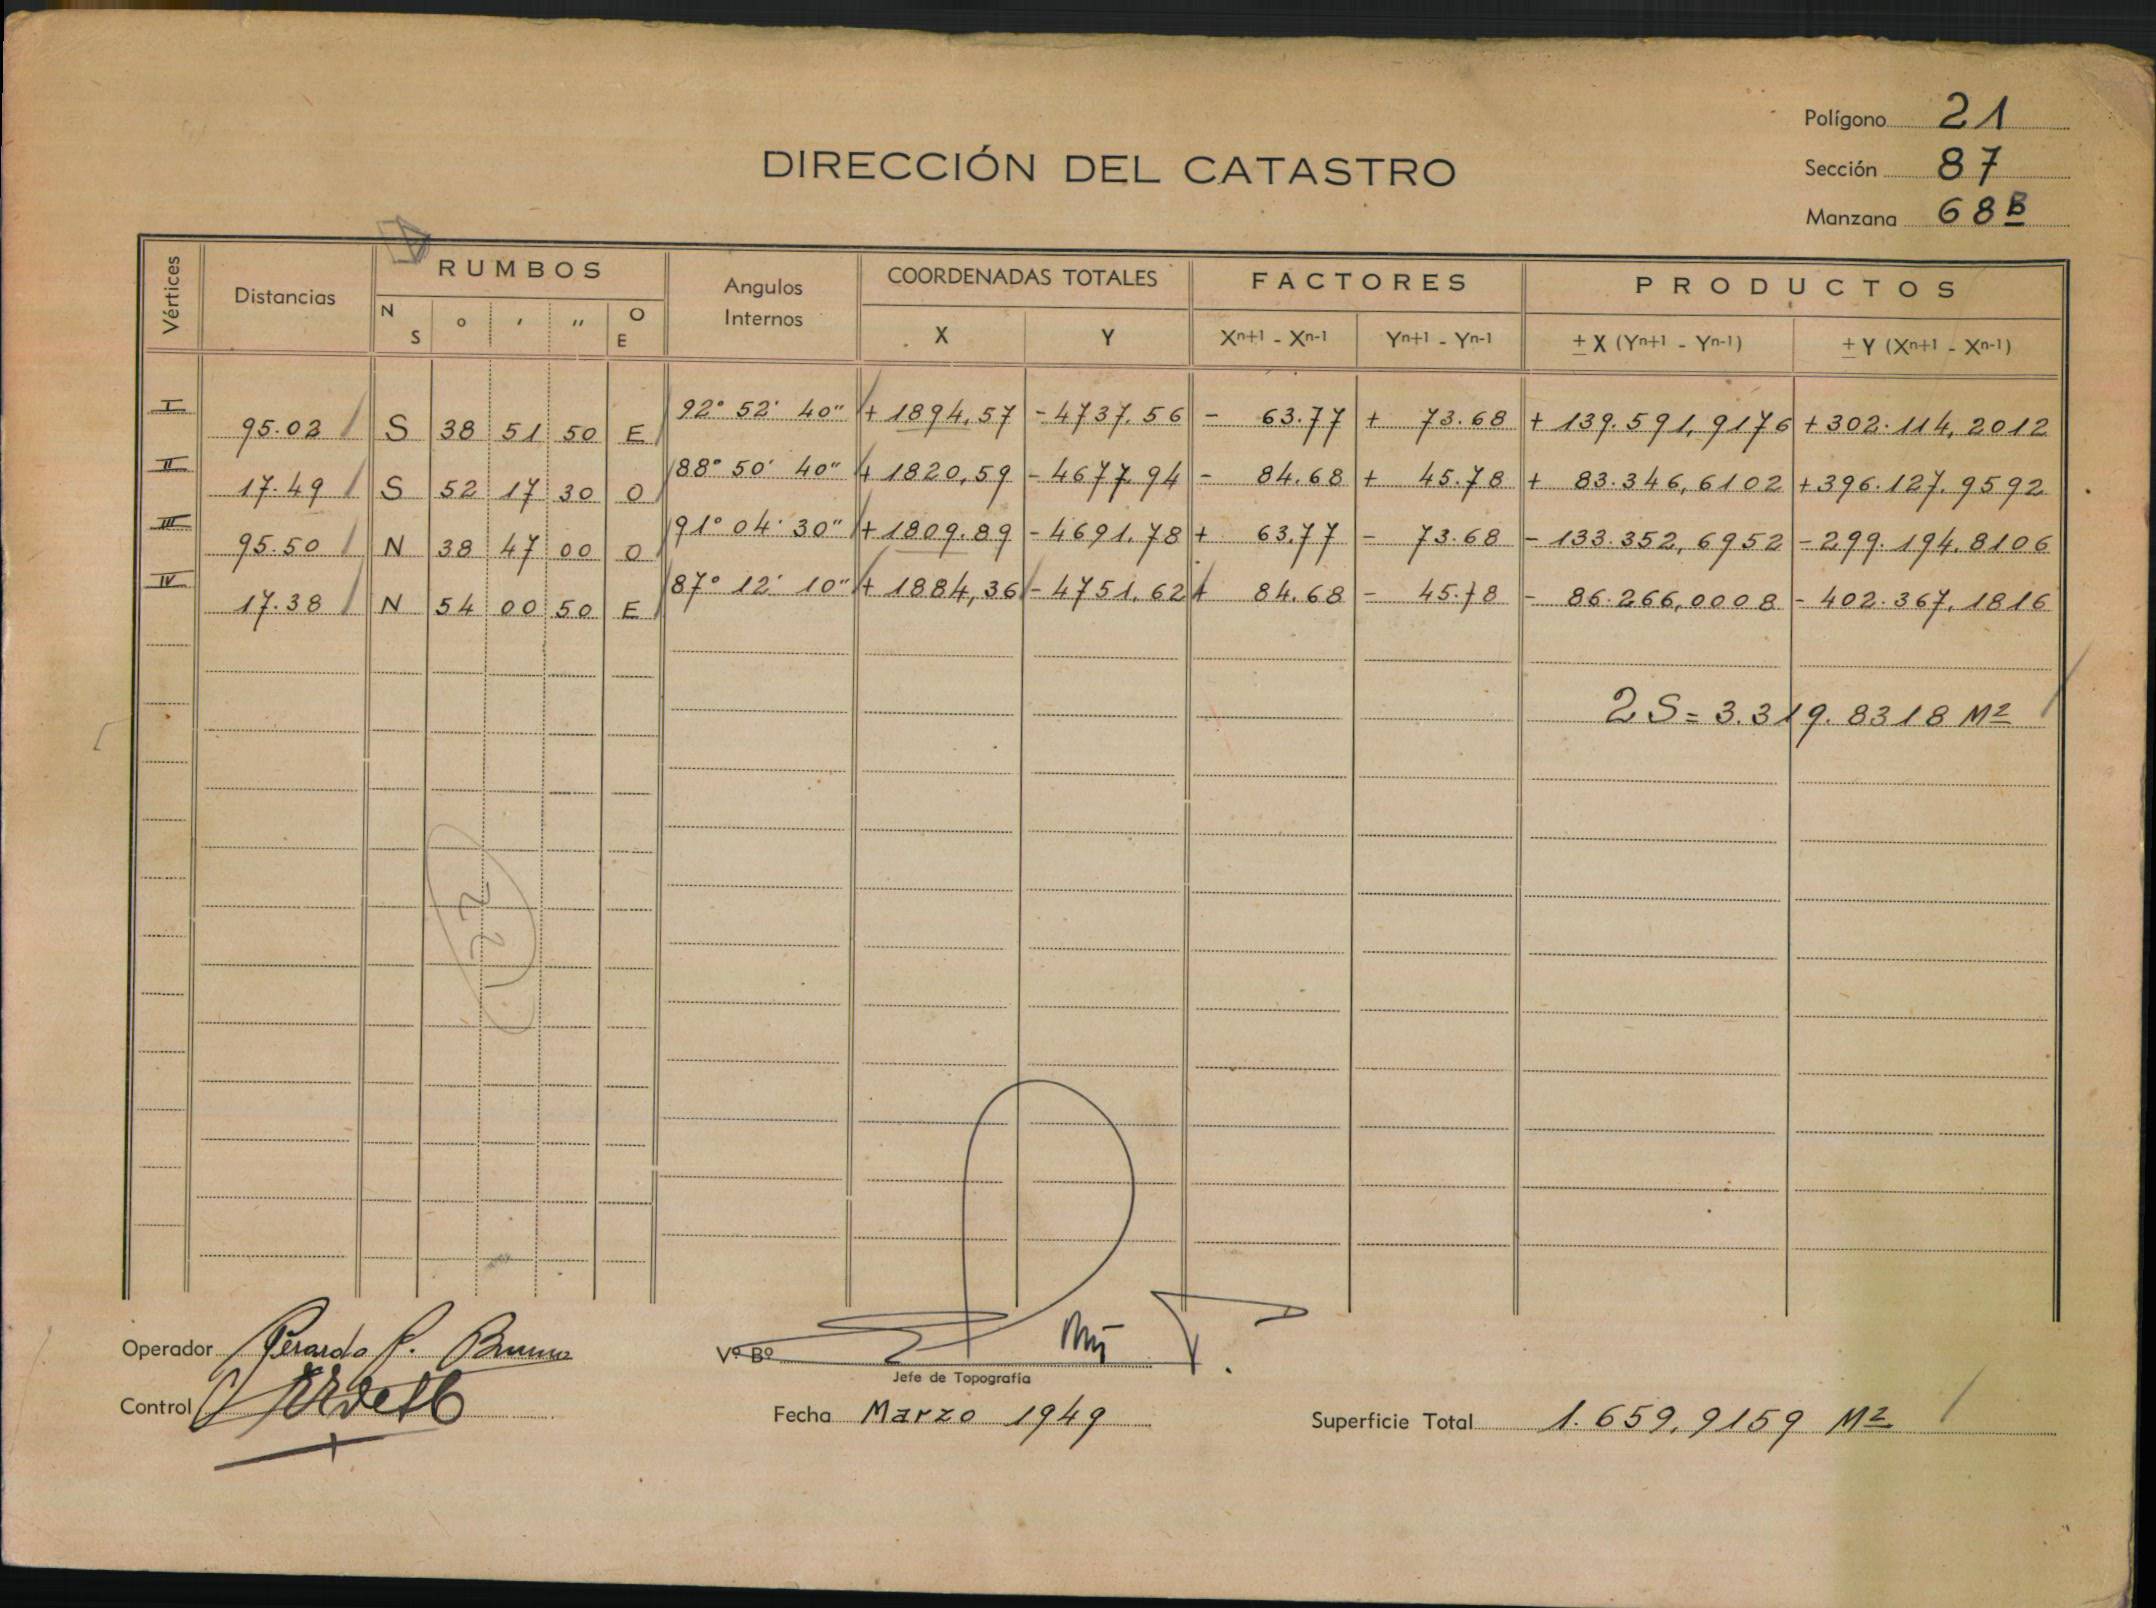 Polígono 21
DIRECCIÓN DEL CATASTRO
Sección 87
Manzana 68 B
Vértices Distancias RUMBOS Angulos Internos COORDENADAS TOTALES FACTORES PRODUCTOS
N S ° ′ ″ O E X Y Xn+1 - Xn-1 Yn+1 - Yn-1 ± X (Yn+1 - Yn-1) ± Y (Xn+1 - Xn-1)
I 95.02 S 38 51 50 E 92° 52' 40" + 1894,57 - 4737.56 - 63.77 + 73.68 + 139.591,9176 + 302.114,2012
II 17.49 S 52 17 30 O 88° 50' 40" + 1820,59 - 4677.94 - 84.68 + 45.78 + 83.346,6102 + 396.127.9592
III 95.50 N 38 47 00 O 91° 04' 30" + 1809.89 - 4691.78 + 63.77 - 73.68 - 133.352,6952 - 299.194.8106
IV 17.38 N 54 00 50 E 87° 12' 10" + 1884,36 - 4751.62 + 84.68 - 45.78 - 86.266,0008 - 402.367.1816
2S = 3.319.8318 M2
Operador Gerardo
Vº Bº
Jefe de Topografía
Control
Fecha Marzo 1949
Superficie Total 1.659,9159 M2